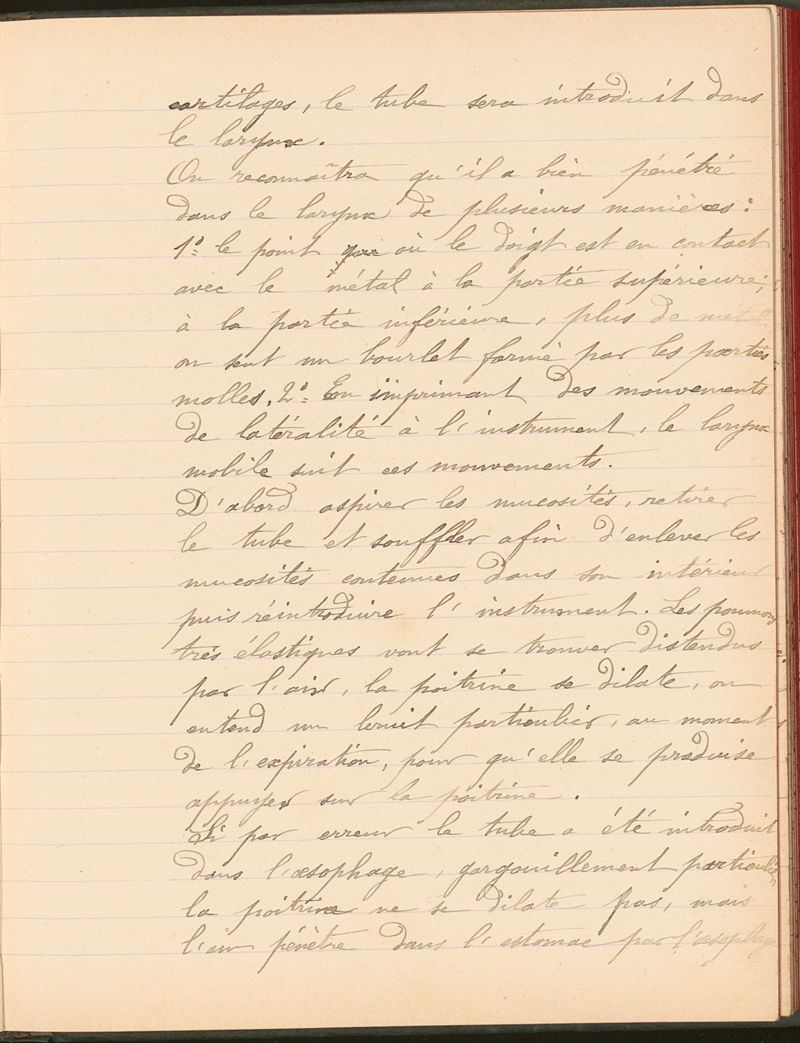 cartilages, le tube sera introduit dans
le larynx.
On reconnaîtra qu'il a bien pénétré
dans le larynx de plusieurs manières :
1º le point où le doigt est en contact
avec le métal à la partie supérieure ;
à la partie inférieure, plus de métal
on sent un bourlet formé par les parties
molles. 2º En imprimant des mouvements
de latéralité à l'instrument, le larynx
mobile suit ces mouvements.
D'abord aspirer les mucosités, retirer
le tube et souffler afin d'enlever les
mucosités contenues dans son intérieur
puis réintroduire l'instrument. Les poumons
très élastiques vont se trouver distendus
par l'air, la poitrine se dilate, on
entend un bruit particulier, au moment
de l'expiration, pour qu'elle se produise
appuyer sur la poitrine.
Si par erreur le tube a été introduit
dans l'œsophage, gargouillement particulier
la poitrine ne se dilate pas, mais
l'air pénètre dans l'estomac par l'œsophage